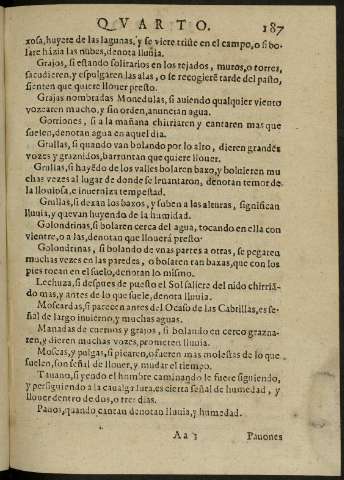 QVARTO. 187
xosa, huyere de las lagunas, y se viere triste en el campo, o si bo-
lare házia las nubes, denota lluuia.
Grajos, si estando solitarios en los tejados, muros, o torres,
sacudieren, y espulgaren las alas, o se recogierē tarde del pasto,
sienten que quiere llouer presto.
Grajas nombradas Monedulas, si auiendo qualquier viento
vozearen mucho, y sin orden, anuncian agua.
Gorriones, si a la mañana chirriaren y cantaren mas que
suelen, denotan agua en aquel dia.
Grullas, si quando van bolando por lo alto, dieren grandes
vozes y graznidos, barruntan que quiere llouer.
Grullas, si hayēdo de los valles bolaren baxo, y boluieren mu
chas vezes al lugar de donde se leuantaron, denotan temor de
la lluuiosa, e inuerniza tempestad.
Grullas, si dexan los baxos, y suben a las alturas, significan
lluuia, y que van huyendo de la humidad.
Golondrinas, si bolaren cerca del agua, tocando en ella con
vientre, o alas, denotan que llouerá presto.
Golondrinas, si bolando de vnas partes a otras, se pegaren
muchas vezes en las paredes, o bolaren tan baxas, que con los
pies tocan en el suelo, denotan lo mismo.
Lechuza, si despues de puesto el Sol saliere del nido chirriā-
do mas, y antes de lo que suele, denota lluuia.
Moscardas, si parecen antes del Ocaso de las Cabrillas, es se-
ñal de largo inuierno, y muchas aguas.
Manadas de cueruos y grajos, si bolando en cerco grazna-
ren, y dieren muchas vozes, prometen lluuia.
Moscas, y pulgas, si picaren, o fueren mas molestas de lo que
suelen, son señal de llouer, y mudar el tiempo.
Tauano, si yendo el hombre caminando le fuere siguiendo,
y persiguiendo a la caualgadura, es cierta señal de humedad, y
llouer dentro de dos, o tres dias.
Pauos, quando cantan denotan lluuia, y humedad.
Aa 3 Pauones